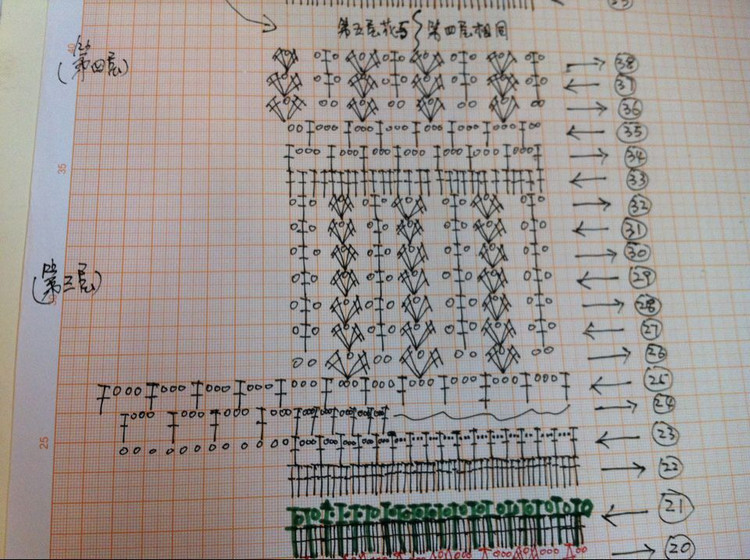 第五层花与 第四层相同
(第四层)
38
37
36
35
35
34
33
32
31
30
(第三层)
29
28
27
26
25
24
23
25
22
21
20